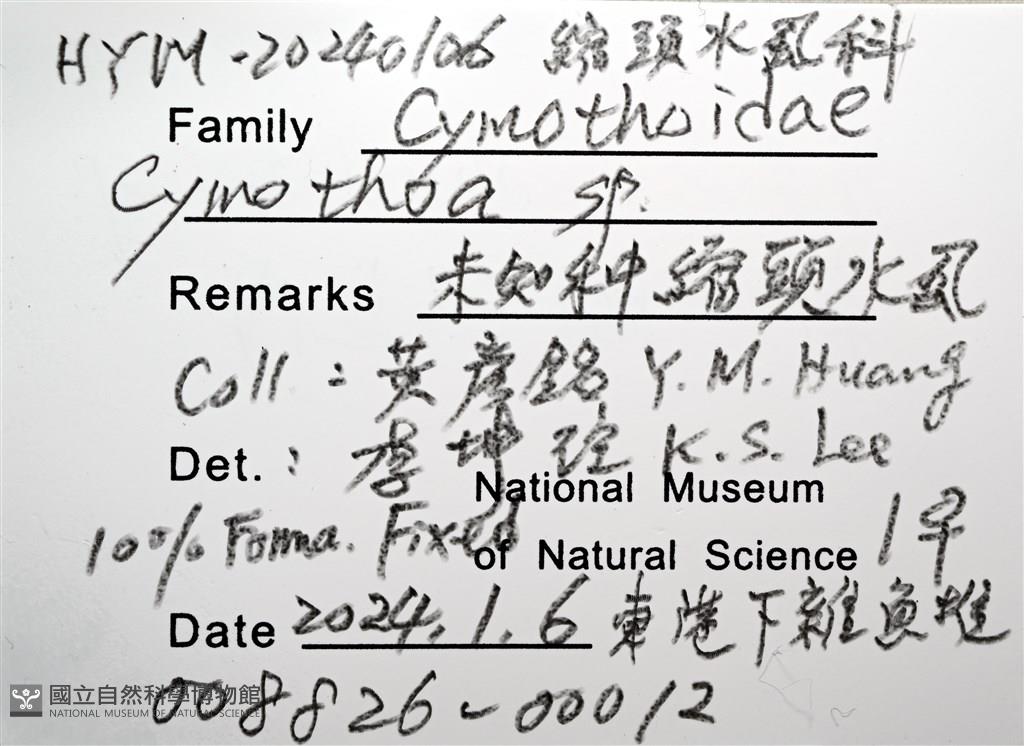 HYM-20240106 縮頭水虱科
Family Cymothoidae
Cymothoa sp.
Remarks 未知种縮頭水虱
Coll : 黃彥銘 Y. M. Huang
Det. : 李坤瑄 K. S. Lee
National Museum
10% Forma. Fixed of Natural Science 1♀
Date 2024. 1. 6 東港下雜魚堆
008826-00012
國立自然科學博物館
NATIONAL MUSEUM OF NATURAL SCIENCE